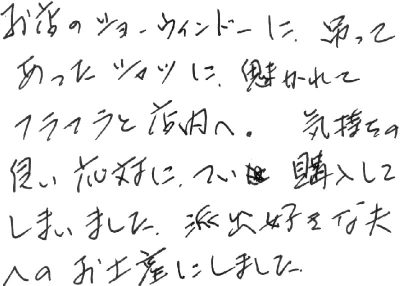 お店のショーウィンドーに、吊って
あったシャツに、魅かれて
フラフラと店内へ。気持ちの
良い応対に、つい購入して
しまいました。派出好きな夫
へのお土産にしました。